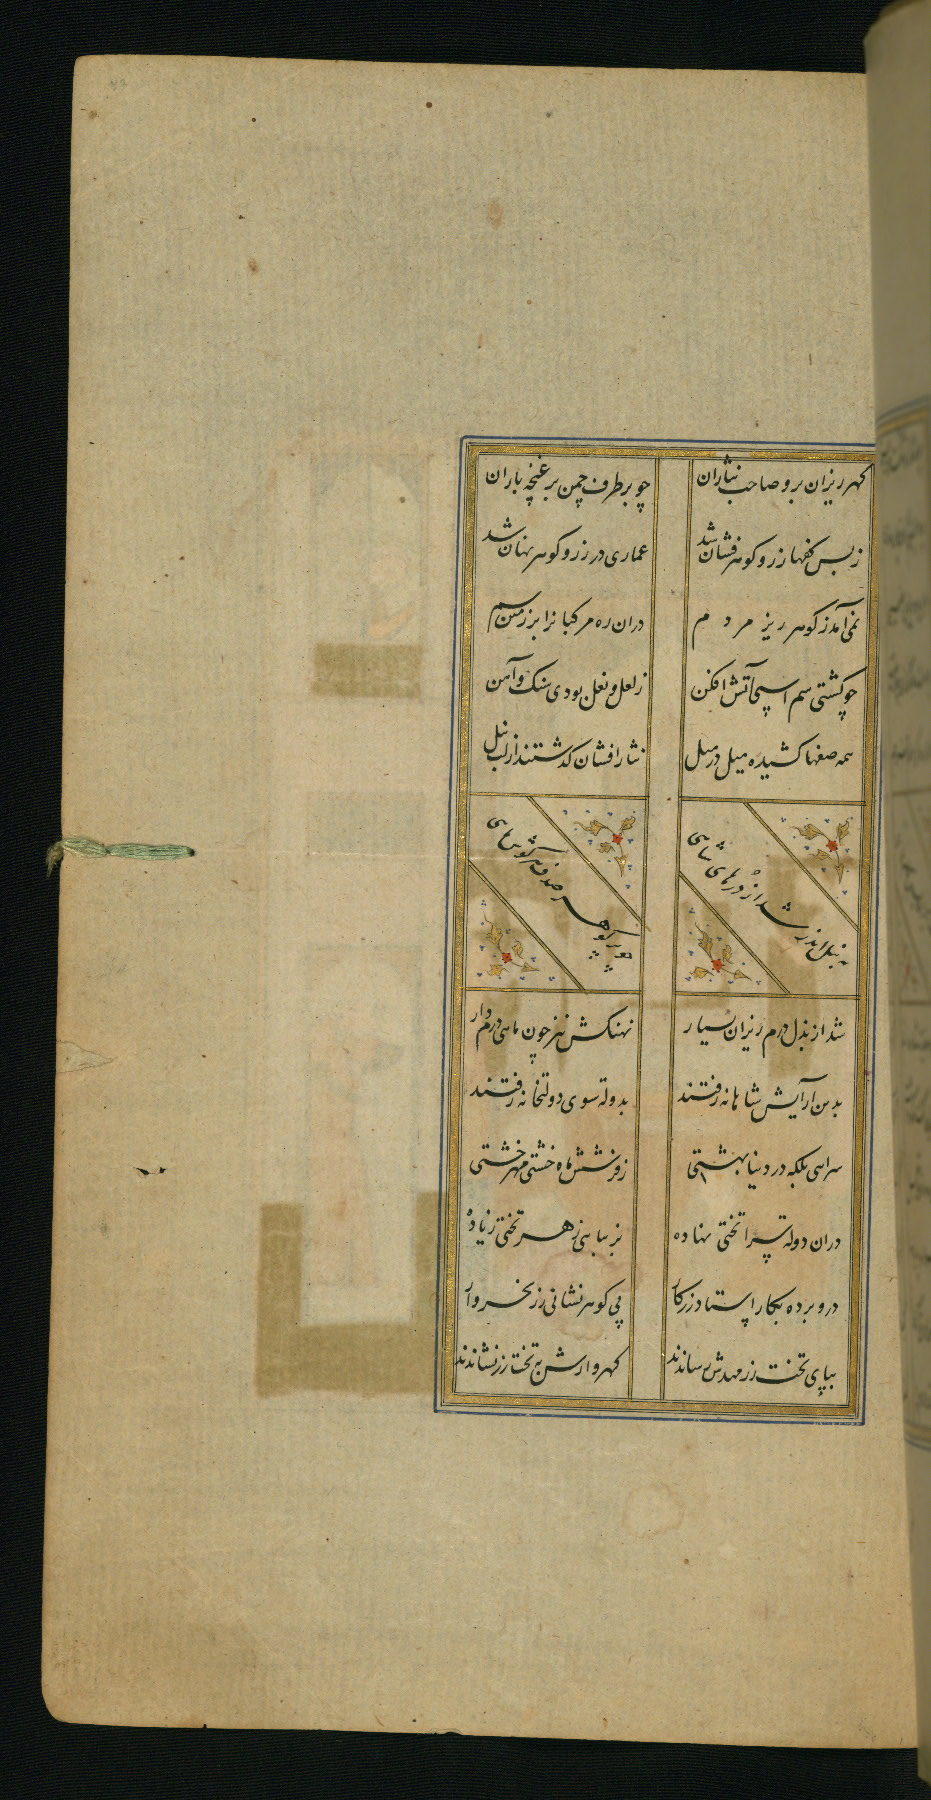 کهر ریزان برو صاحب نثاران چو بر طرف چمن بر غنچه باران
ز بس کفها ز زر و کوهر فشان شد عماری در زر و کوهر نهان شد
نمی آمد ز کوهر ریز مردم دران ره مرکبانرا بر زمین سم
چو کشتی سم اسپی آتش افکن ز لعل و نعل بودی سنک و آهن
همه صفها کشیده میل در میل نثار افشان کذشتند از لب نیل
به نیل اندر شد از درهای شاهی پر کوهر صدف هر کوش ماهی
شد از بذل درم ریزان بسیار نهنکش نیز چون ماهی درم دار
بدین آرایش شاهانه رفتند بدولت سوی دولتخانه رفتند
سرایی بلکه در دنیا بهشتی ز فرشش ماه خشتی مهر خشتی
دران دولت سرا تختی نهاده بزیبایی ز هر تختی زیاده
درو برده بکار استاد زرکار پی کوهر نشانی زر بخروار
بپای تخت زر مهدش رساندند کهروارش به تخت زر نشاندند